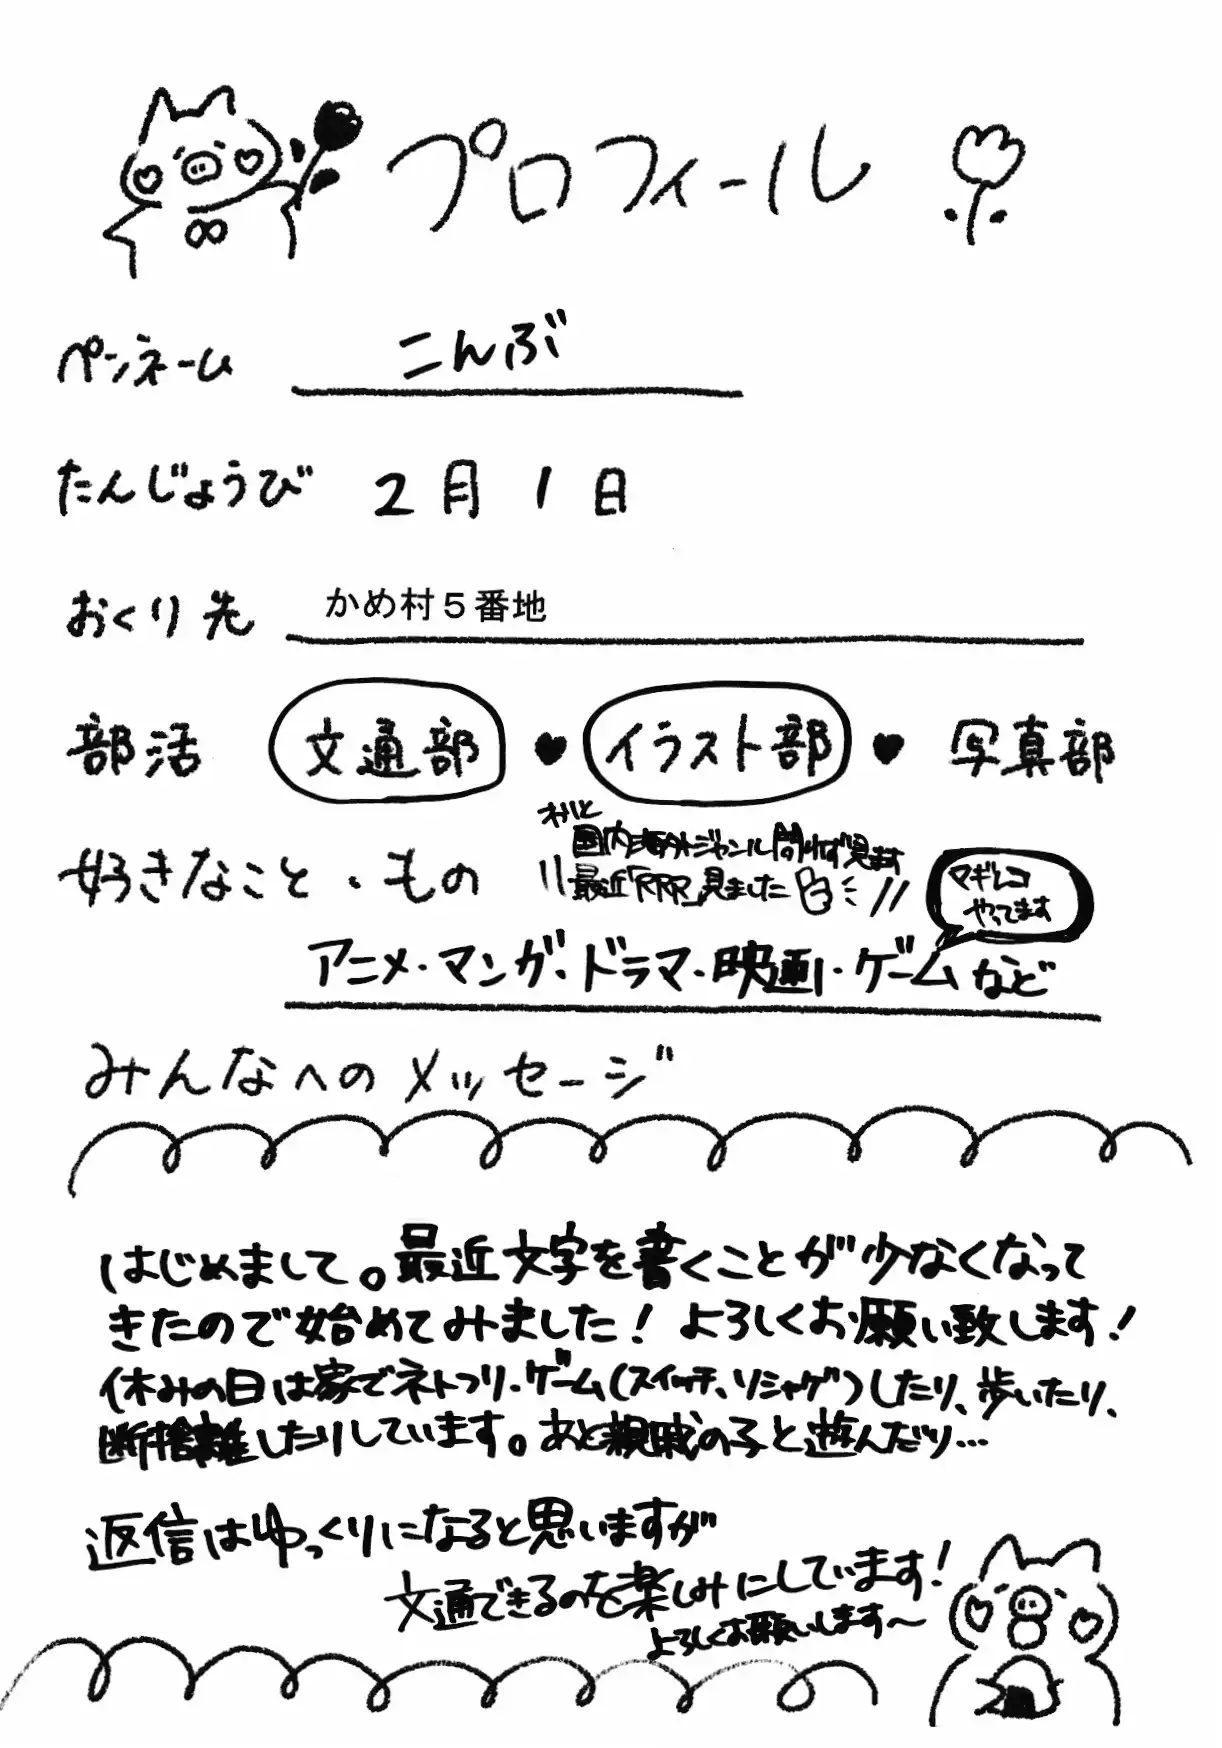 プロフィール
ペンネーム こんぶ
たんじょうび 2月1日
おくり先 かめ村5番地
部活 文通部 ♥ イラスト部 ♥ 写真部
わりと
国内海外ジャンル問わず見ます
最近「RRR」見ました
マギレコ
やってます
好きなこと・もの
アニメ・マンガ・ドラマ・映画・ゲームなど
みんなへのメッセージ
はじめまして。最近文字を書くことが少なくなって
きたので始めてみました!よろしくお願い致します!
休みの日は家でネトフリ・ゲーム(スイッチ、ソシャゲ)したり、歩いたり、
断捨離したりしています。あと親戚の子と遊んだり…
返信はゆっくりになると思いますが
文通できるのを楽しみにしています!
よろしくお願いします〜